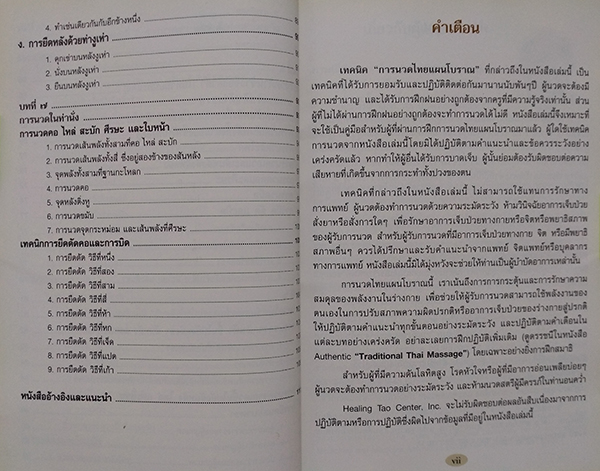 4. ทำเช่นเดียวกันกับอีกข้างหนึ่ง
ง. การยืดหลังด้วยท่างูเห่า
1. คุกเข่าบนหลังงูเห่า
2. นั่งบนหลังงูเห่า
3. ยืนบนหลังงูเห่า
บทที่ ๗
การนวดในท่านั่ง
การนวดคอ ไหล่ สะบัก ศีรษะ และใบหน้า
1. การนวดเส้นพลังทั้งสามที่คอ ไหล่ สะบัก
2. การนวดเส้นพลังทั้งสี่ ซึ่งอยู่สองข้างของสันหลัง
3. จุดพลังทั้งสามที่ฐานกะโหลก
4. การนวดคอ
5. จุดหลังติ่งหู
6. การนวดขมับ
7. การนวดจุดกระหม่อม และเส้นพลังที่ศีรษะ
เทคนิกการยืดดัดคอและการบิด
1. การยืดดัด วิธีที่หนึ่ง
2. การยืดดัด วิธีที่สอง
3. การยืดดัด วิธีที่สาม
4. การยืดดัด วิธีที่สี่
5. การยืดดัด วิธีที่ห้า
6. การยืดดัด วิธีที่หก
7. การยืดดัด วิธีที่เจ็ด
8. การยืดดัด วิธีที่แปด
9. การยืดดัด วิธีที่เก้า
หนังสืออ้างอิงและแนะนำ
คำเตือน
เทคนิค "การนวดไทยแผนโบราณ" ที่กล่าวถึงในหนังสือเล่มนี้ เป็น
เทคนิคที่ได้รับการยอมรับและปฏิบัติติดต่อกันมานานนับพันๆปี ผู้นวดจะต้องมี
ความชำนาญ และได้รับการฝึกฝนอย่างถูกต้องจากครูที่มีความรู้จริงเท่านั้น ส่วน
ผู้ที่ไม่ได้ผ่านการฝึกฝนอย่างถูกต้องจะทำการนวดได้ไม่ดี หนังสือเล่มนี้จึงเหมาะที่
จะใช้เป็นคู่มือสำหรับผู้ที่ผ่านการฝึกการนวดไทยแผนโบราณมาแล้ว ผู้ใดใช้เทคนิค
การนวดจากหนังสือเล่มนี้โดยมิได้ปฏิบัติตามคำแนะนำและข้อควรระวังอย่าง
เคร่งครัดแล้ว หากทำให้ผู้อื่นได้รับการบาดเจ็บ ผู้นั้นย่อมต้องรับผิดชอบต่อความ
เสียหายที่เกิดขึ้นจากการกระทำทั้งปวงของตน
เทคนิคที่กล่าวถึงในหนังสือเล่มนี้ ไม่สามารถใช้แทนการรักษาทาง
การแพทย์ ผู้นวดต้องทำการนวดด้วยความระมัดระวัง ห้ามวินิจฉัยอาการเจ็บป่วย
สั่งยาหรือสั่งการใดๆ เพื่อรักษาอาการเจ็บป่วยทางกายหรือจิตหรือพยาธิสภาพ
ของผู้รับการนวด สำหรับผู้รับการนวดที่มีอาการเจ็บป่วยทางกาย จิต หรือมีพยาธิ
สภาพอื่นๆ ควรได้ปรึกษาและรับคำแนะนำจากแพทย์ จิตแพทย์หรือบุคลากร
ทางการแพทย์ หนังสือเล่มนี้มิได้มุ่งหวังจะช่วยให้ท่านเป็นผู้บำบัดอาการเหล่านั้น
การนวดไทยแผนโบราณนี้ เราเน้นถึงการการกระตุ้นและการรักษาความ
สมดุลของพลังงานในร่างกาย เพื่อช่วยให้ผู้รับการนวดสามารถใช้พลังงานของ
ตนเองในการปรับสภาพความผิดปรกติหรืออาการเจ็บป่วยของร่างกายสู่ปรกติ
ให้ปฏิบัติตามคำแนะนำทุกขั้นตอนอย่างระมัดระวัง และปฏิบัติตามคำเตือนใน
แต่ละบทอย่างเคร่งครัด อย่าละเลยการฝึกปฏิบัติเพิ่มเติม (ดูตรรชนีในหนังสือ
Authentic "Traditional Thai Massage") โดยเฉพาะอย่างยิ่งการฝึกสมาธิ
สำหรับผู้ที่มีความดันโลหิตสูง โรคหัวใจหรือผู้ที่มีอาการอ่อนเพลียบ่อยๆ
ผู้นวดจะต้องทำการนวดอย่างระมัดระวัง และห้ามนวดสตรีผู้มีครรภ์ในท่านอนคว่ำ
Healing Tao Center, Inc. จะไม่รับผิดชอบต่อผลอันสืบเนื่องมาจาก
ปฏิบัติตามหรือการปฏิบัติซึ่งผิดไปจากข้อมูลที่มีอยู่ในหนังสือเล่มนี้
vii